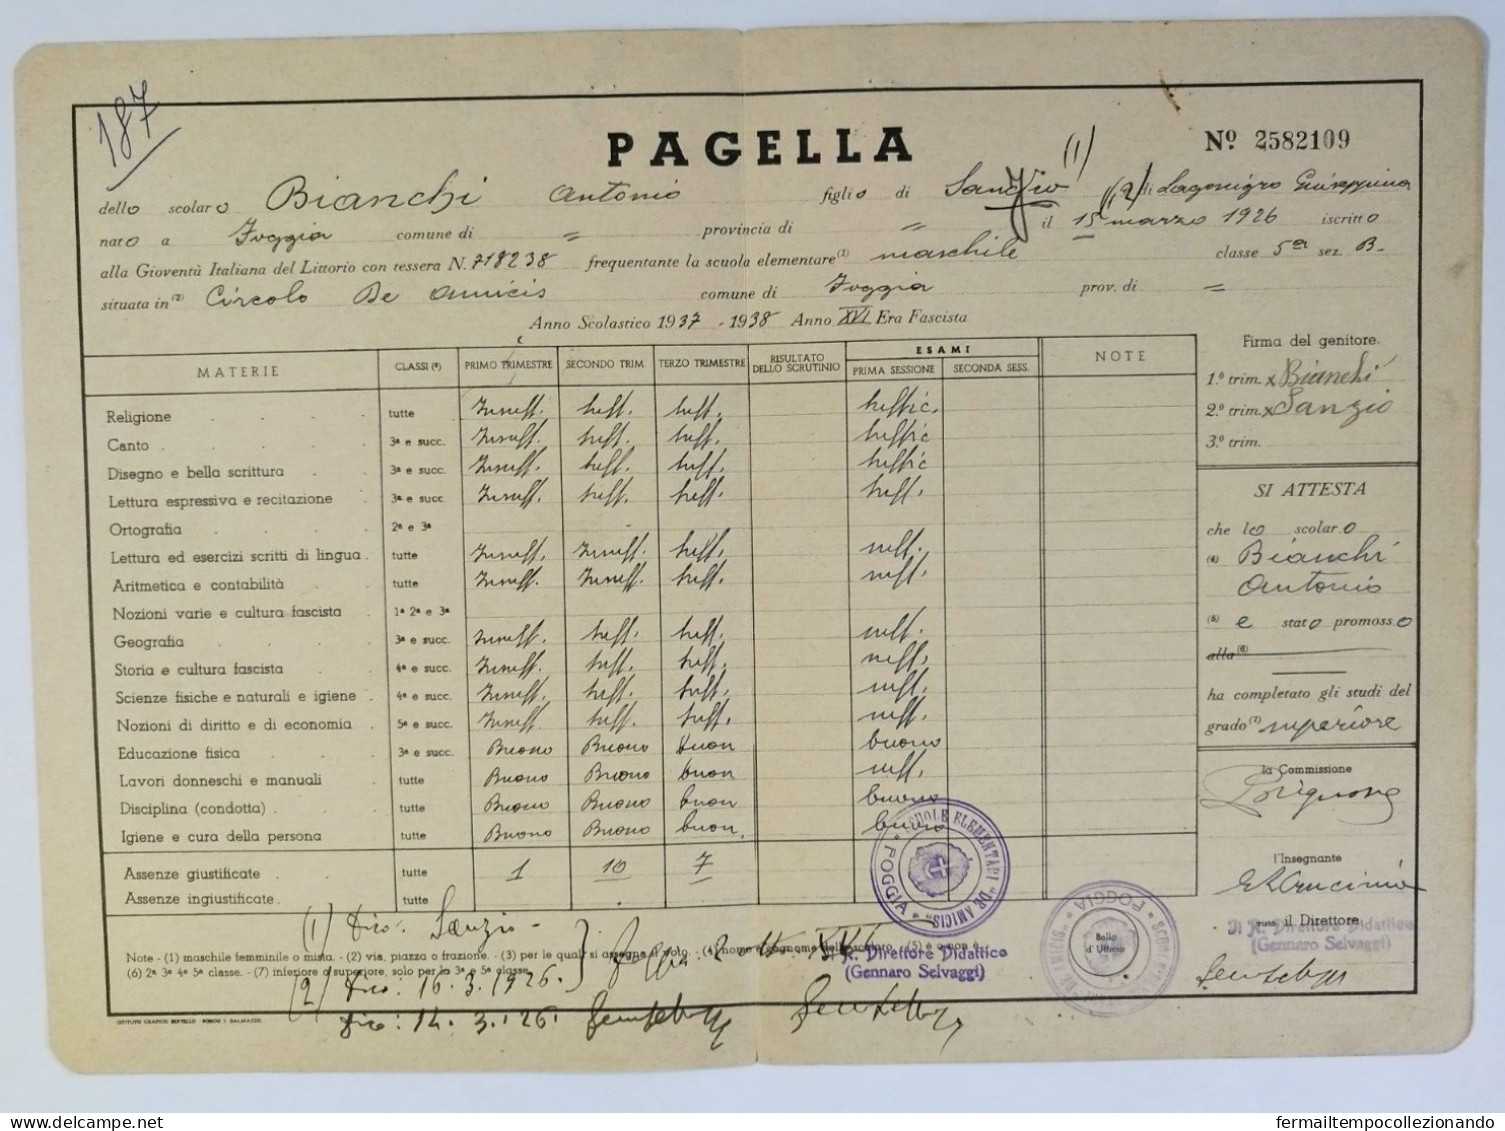 187
PAGELLA
Nº 2582109
(1)
dello scolaro Bianchi Antonio figlio di Sanzio (2) di Lagonigro Giuseppina
nato a Foggia comune di = provincia di = il 15 marzo 1926 iscritto
alla Gioventù Italiana del Littorio con tessera N. 718238 frequentante la scuola elementare (1) maschile classe 5a sez. B-
situata in (2) Circolo De Amicis comune di Foggia prov. di =
Anno Scolastico 1937-1938 Anno XVI Era Fascista
MATERIE CLASSI (*) PRIMO TRIMESTRE SECONDO TRIM. TERZO TRIMESTRE RISULTATO DELLO SCRUTINIO ESAMI PRIMA SESSIONE SECONDA SESS. NOTE
Religione tutte Insuff. suff. suff. suffic.
Canto 3ª e succ. Insuff. suff. suff. suffic
Disegno e bella scrittura 3ª e succ. Insuff. suff. suff. suffic
Lettura espressiva e recitazione 3ª e succ. Insuff. suff. suff. suff.
Ortografia 2ª e 3ª
Lettura ed esercizi scritti di lingua tutte Insuff. Insuff. suff. suff.
Aritmetica e contabilità tutte Insuff. Insuff. suff. suff.
Nozioni varie e cultura fascista 1ª 2ª e 3ª
Geografia 3ª e succ. Insuff. suff. suff. suff.
Storia e cultura fascista 4ª e succ. Insuff. suff. suff. suff.
Scienze fisiche e naturali e igiene 4ª e succ. Insuff. suff. suff. suff.
Nozioni di diritto e di economia 5ª e succ. Insuff. suff. suff. suff.
Educazione fisica 3ª e succ. Buono Buono buon buono
Lavori donneschi e manuali tutte Buono Buono buon suff.
Disciplina (condotta) tutte Buono Buono buon buono
Igiene e cura della persona tutte Buono Buono buon. buono
Assenze giustificate tutte 1 10 7
Assenze ingiustificate tutte
Firma del genitore.
1.º trim. x Bianchi
2.º trim. x Sanzio
3.º trim.
SI ATTESTA
che lo scolaro
(4) Bianchi
Antonio
(5) e stato promosso
alla (6)
ha completato gli studi del
grado (7) superiore
la Commissione
l'Insegnante
Visto, il Direttore
Il R. Direttore Didattico
(Gennaro Selvaggi)
SCUOLE ELEMENTARI "DE AMICIS" FOGGIA
Bollo d'Ufficio
SCUOLE "DE AMICIS" FOGGIA
(1) Dico: Sanzio -
Note - (1) maschile femminile o mista. - (2) via, piazza o frazione. - (3) per le quali si assegna il voto. - (4) nome e cognome dello scolaro. - (5) è o non è.
(6) 2ª 3ª 4ª 5ª classe. - (7) inferiore o superiore, solo per la 3ª e 5ª classe.
Foggia
Il R. Direttore Didattico
(Gennaro Selvaggi)
(2) Dico: 16.3.1926.
Dico: 14.3.26.
fermailtempocollezionando